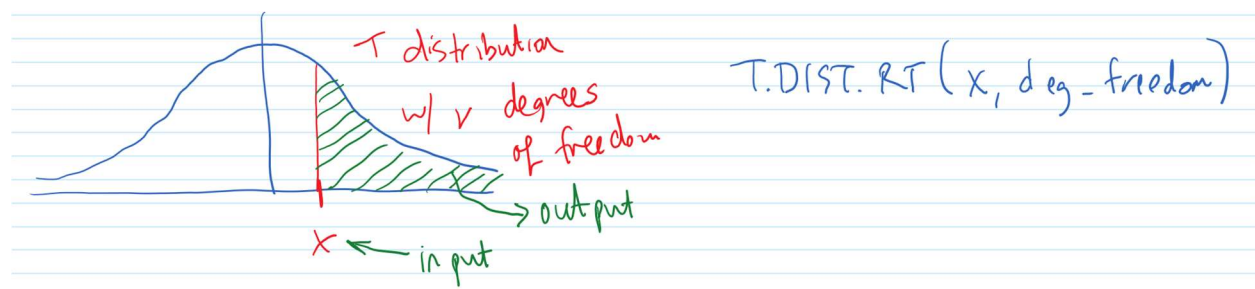 T distribution
w/ ν degrees
of freedom
T.DIST.RT(x, deg_freedom)
output
x
input